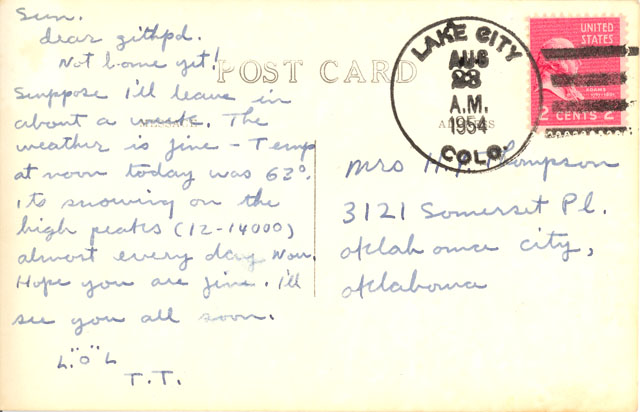 Sun.
dear
Not home yet!
Suppose I'll leave in
about a week. The
weather is fine - Temp
at noon today was 62°.
its snowing on the
high peaks (12-14000)
almost every day now.
Hope you are fine. i'll
see you all soon.
L.O.L
T.T.
POST CARD
ADDRESS
LAKE CITY
AUG
23
A.M.
1954
COLO.
UNITED
STATES
ADAMS
2 CENTS 2
Mrs H. Thompson
3121 Somerset Pl.
oklahoma city,
oklahoma